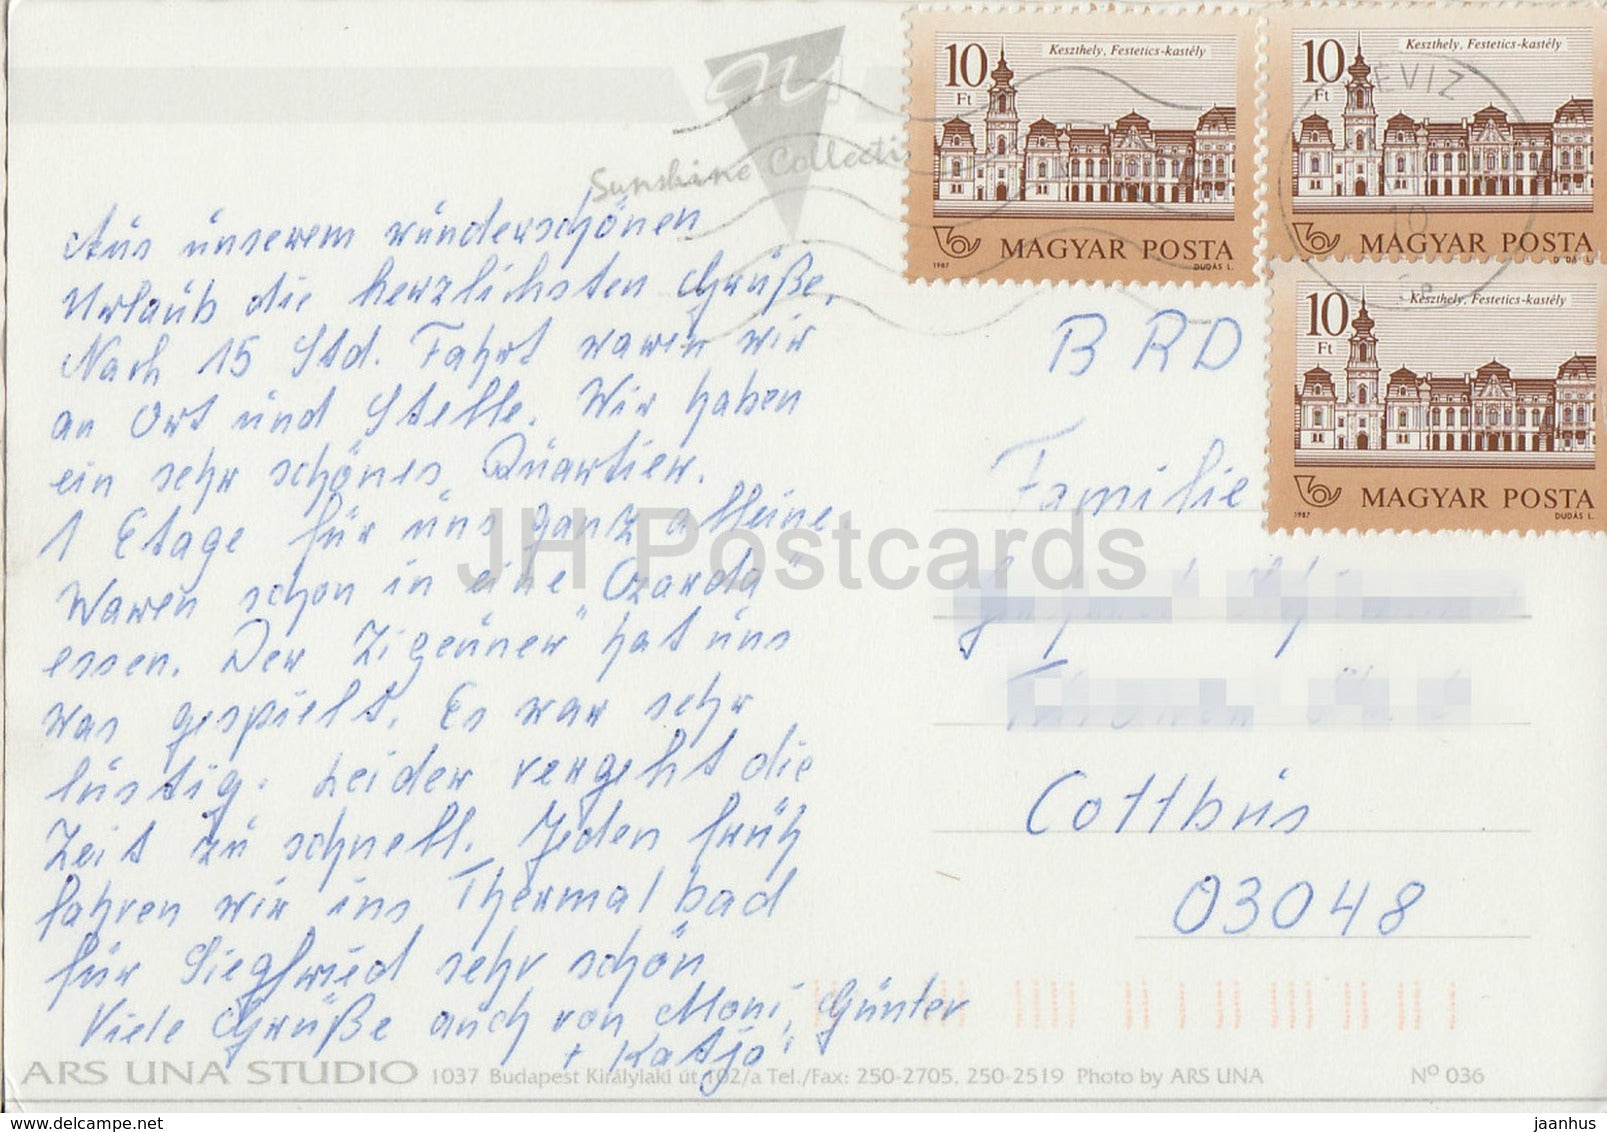 au
Sunshine Collecti
10 Ft Keszthely, Festetics-kastély
MAGYAR POSTA
1987 DUDÁS L.
10 Ft Keszthely, Festetics-kastély
MAGYAR POSTA
DUDÁS L.
10 Ft Keszthely, Festetics-kastély
MAGYAR POSTA
1987 DUDÁS L.
ÉVIZ
10
Aus unserem wunderschönen
Urlaub die herzlichsten Grüße.
Nach 15 Std. Fahrt waren wir
an Ort und Stelle. Wir haben
ein sehr schönes Quartier.
1 Etage für uns ganz alleine
Waren schon in eine Czarda"
essen. Der Zigeuner" hat uns
was gespielt. Es war sehr
lustig. Leider vergeht die
Zeit zu schnell. Jeden früh
fahren wir ins Thermalbad
für Siegfried sehr schön
Viele Grüße auch von Moni, Günter
+ Katja
BRD
Familie
Cottbus
03048
JH Postcards
ARS UNA STUDIO 1037 Budapest Királylaki út 102/a Tel./Fax: 250-2705, 250-2519 Photo by ARS UNA Nº 036
delcampe.net
jaanhus